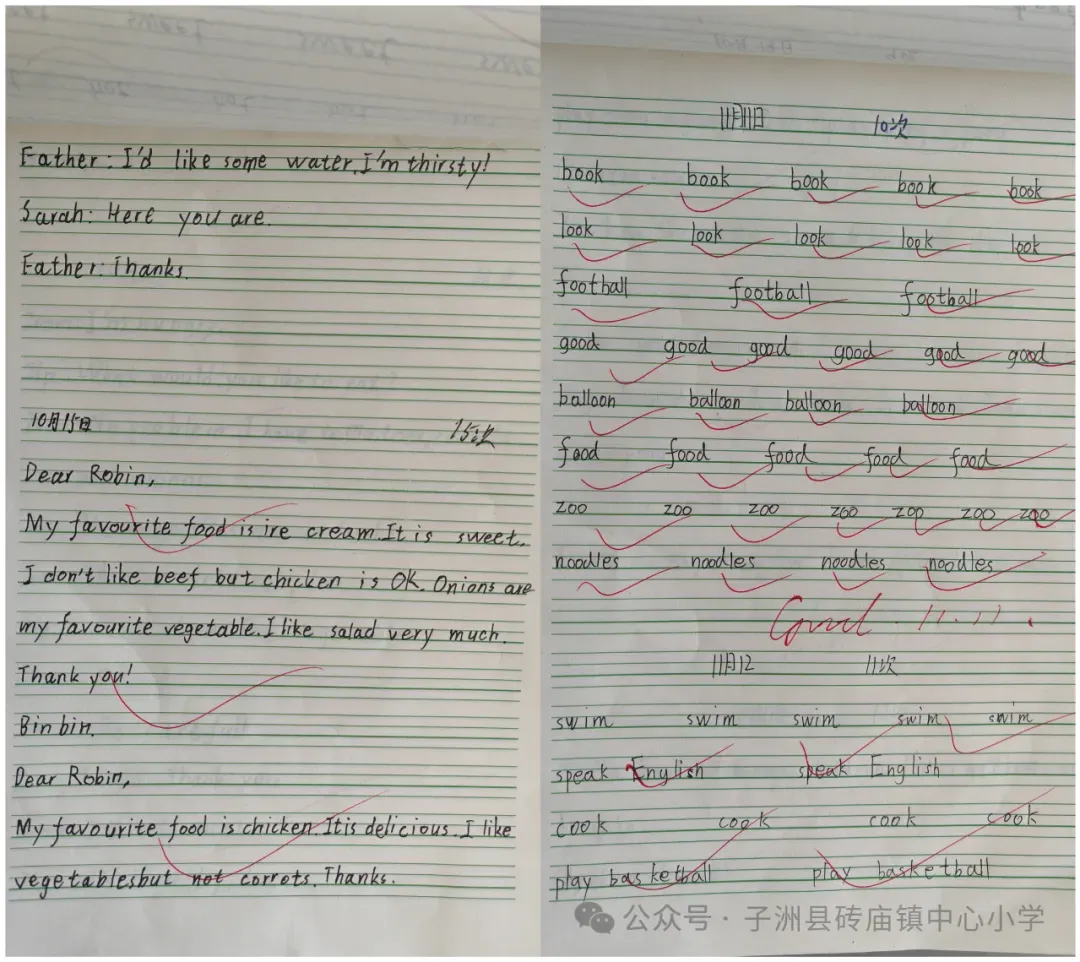 Father: I'd like some water.I'm thirsty!
Sarah: Here you are.
Father: Thanks.
10月15日 15次
Dear Robin,
My favourite food is ire cream.It is sweet.
I don't like beef but chicken is OK. Onions are
my favourite vegetable.I like salad very much.
Thank you!
Bin bin.
Dear Robin,
My favourite food is chicken.Itis delicious.I like
vegetablesbut not corrots.Thanks.
11月11日 10次
book book book book book
look look look look look
football football football
good good good good good good
balloon balloon balloon balloon
food food food food food
zoo zoo zoo zoo zoo zoo zoo
noodles noodles noodles noodles
Good 11.11.
11月12 11次
swim swim swim swim swim
speak English speak English
cook cook cook cook
play basketball play basketball
公众号·子洲县砖庙镇中心小学